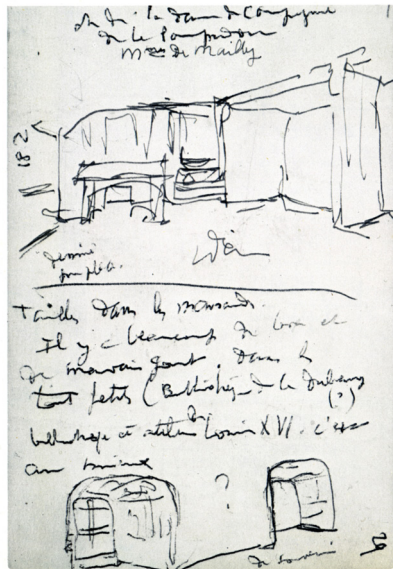 de la dame de Compagnie
de la Pompadour
Mme de Mailly
281
dessiné
Taillés dans les
Il y a beaucoup de bon et
de mauvais goût, dans les
tout petits (Bibliothèque de la Dubarry
(?)
bibliothèque et atelier de Louis XVI. C'est
au mieux
?